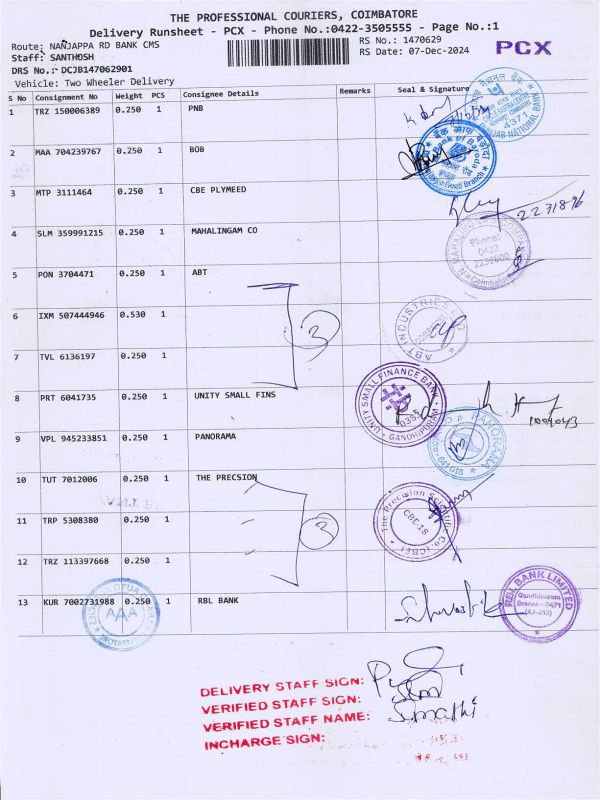 THE PROFESSIONAL COURIERS, COIMBATORE
Delivery Runsheet - PCX - Phone No.:0422-3505555 - Page No.:1
Route: NANJAPPA RD BANK CMS RS No.: 1470629
Staff: SANTHOSH RS Date: 07-Dec-2024 PCX
DRS No.: DCJB147062901
Vehicle: Two Wheeler Delivery
S No Consignment No Weight PCS Consignee Details Remarks Seal & Signature
1 TRZ 150006389 0.250 1 PNB
4371
2 MAA 704239767 0.250 1 BOB
3 MTP 3111464 0.250 1 CBE PLYMEED
2231896
4 SLM 359991215 0.250 1 MAHALINGAM CO
Phone:
0422
Coimbatore
5 PON 3704471 0.250 1 ABT
6 IXM 507444946 0.530 1
3
ABT INDUSTRIES
7 TVL 6136197 0.250 1
8 PRT 6041735 0.250 1 UNITY SMALL FINS
UNITY SMALL FINANCE BANK
GANDHIPURAM
9 VPL 945233851 0.250 1 PANORAMA
PANORAMA
10 TUT 7012006 0.250 1 THE PRECSION
11 TRP 5308380 0.250 1
3
The Precision Scientific Co. (CBE)
CBE-18
12 TRZ 113397668 0.250 1
13 KUR 7002731988 0.250 1 RBL BANK
RBL BANK LIMITED
Gandhipuram
Branch - 0471
AAA
DELIVERY STAFF SIGN:
VERIFIED STAFF SIGN:
VERIFIED STAFF NAME: Sumathi
INCHARGE SIGN: